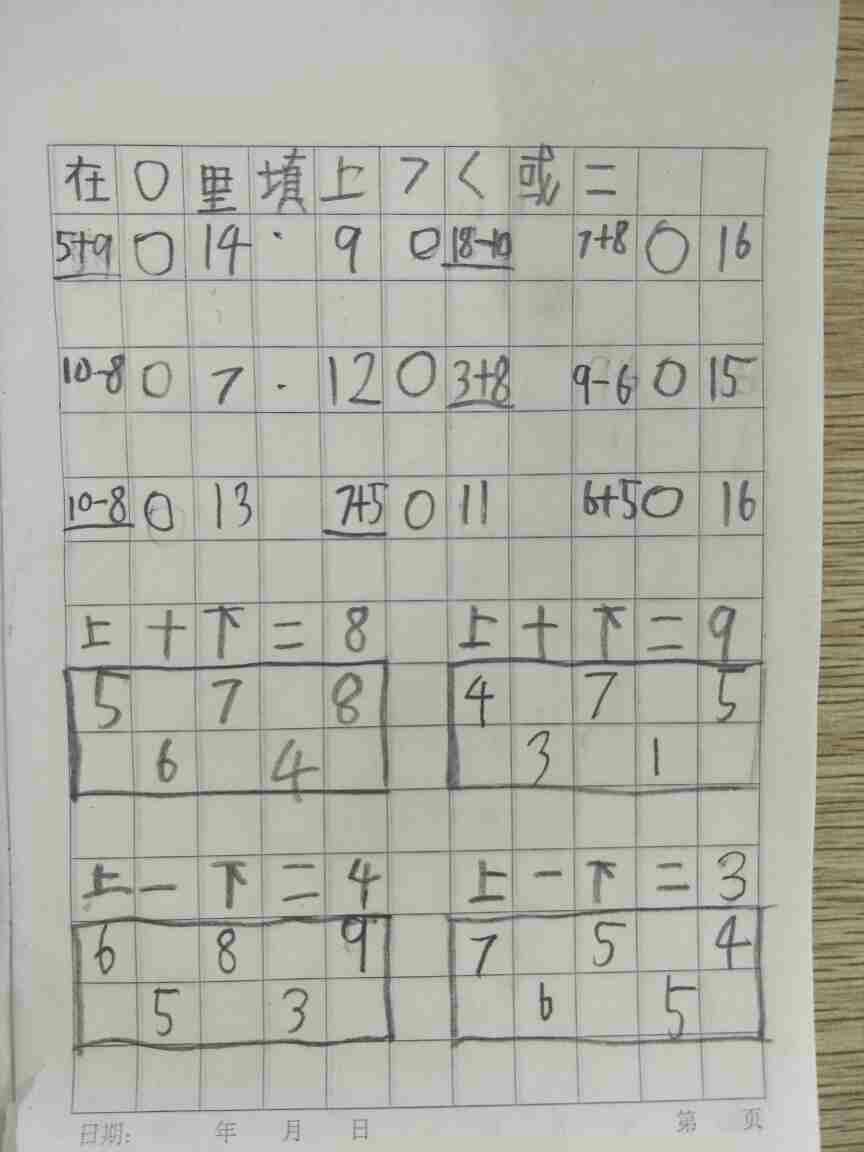 在 ○ 里 填 上 > < 或 =
5+9 ○ 14 · 9 ○ 18-10 7+8 ○ 16
10-8 ○ 7 · 12 ○ 3+8 9-6 ○ 15
10-8 ○ 13 7+5 ○ 11 6+5 ○ 16
上 + 下 = 8 上 + 下 = 9
5 7 8 4 7 5
6 4 3 1
上 - 下 = 4 上 - 下 = 3
6 8 9 7 5 4
5 3 6 5
日期: 年 月 日 第 页